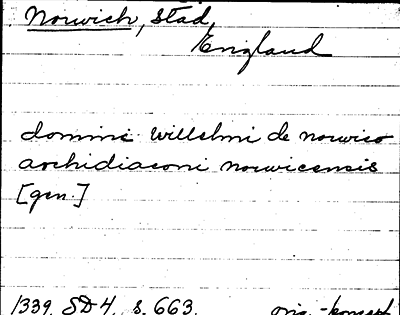 Norwich, stad,
England
domini Willelmi de norwico
archidiaconi norwicensis
[gen.]
1339. SD4, s. 663. orig.-koncept